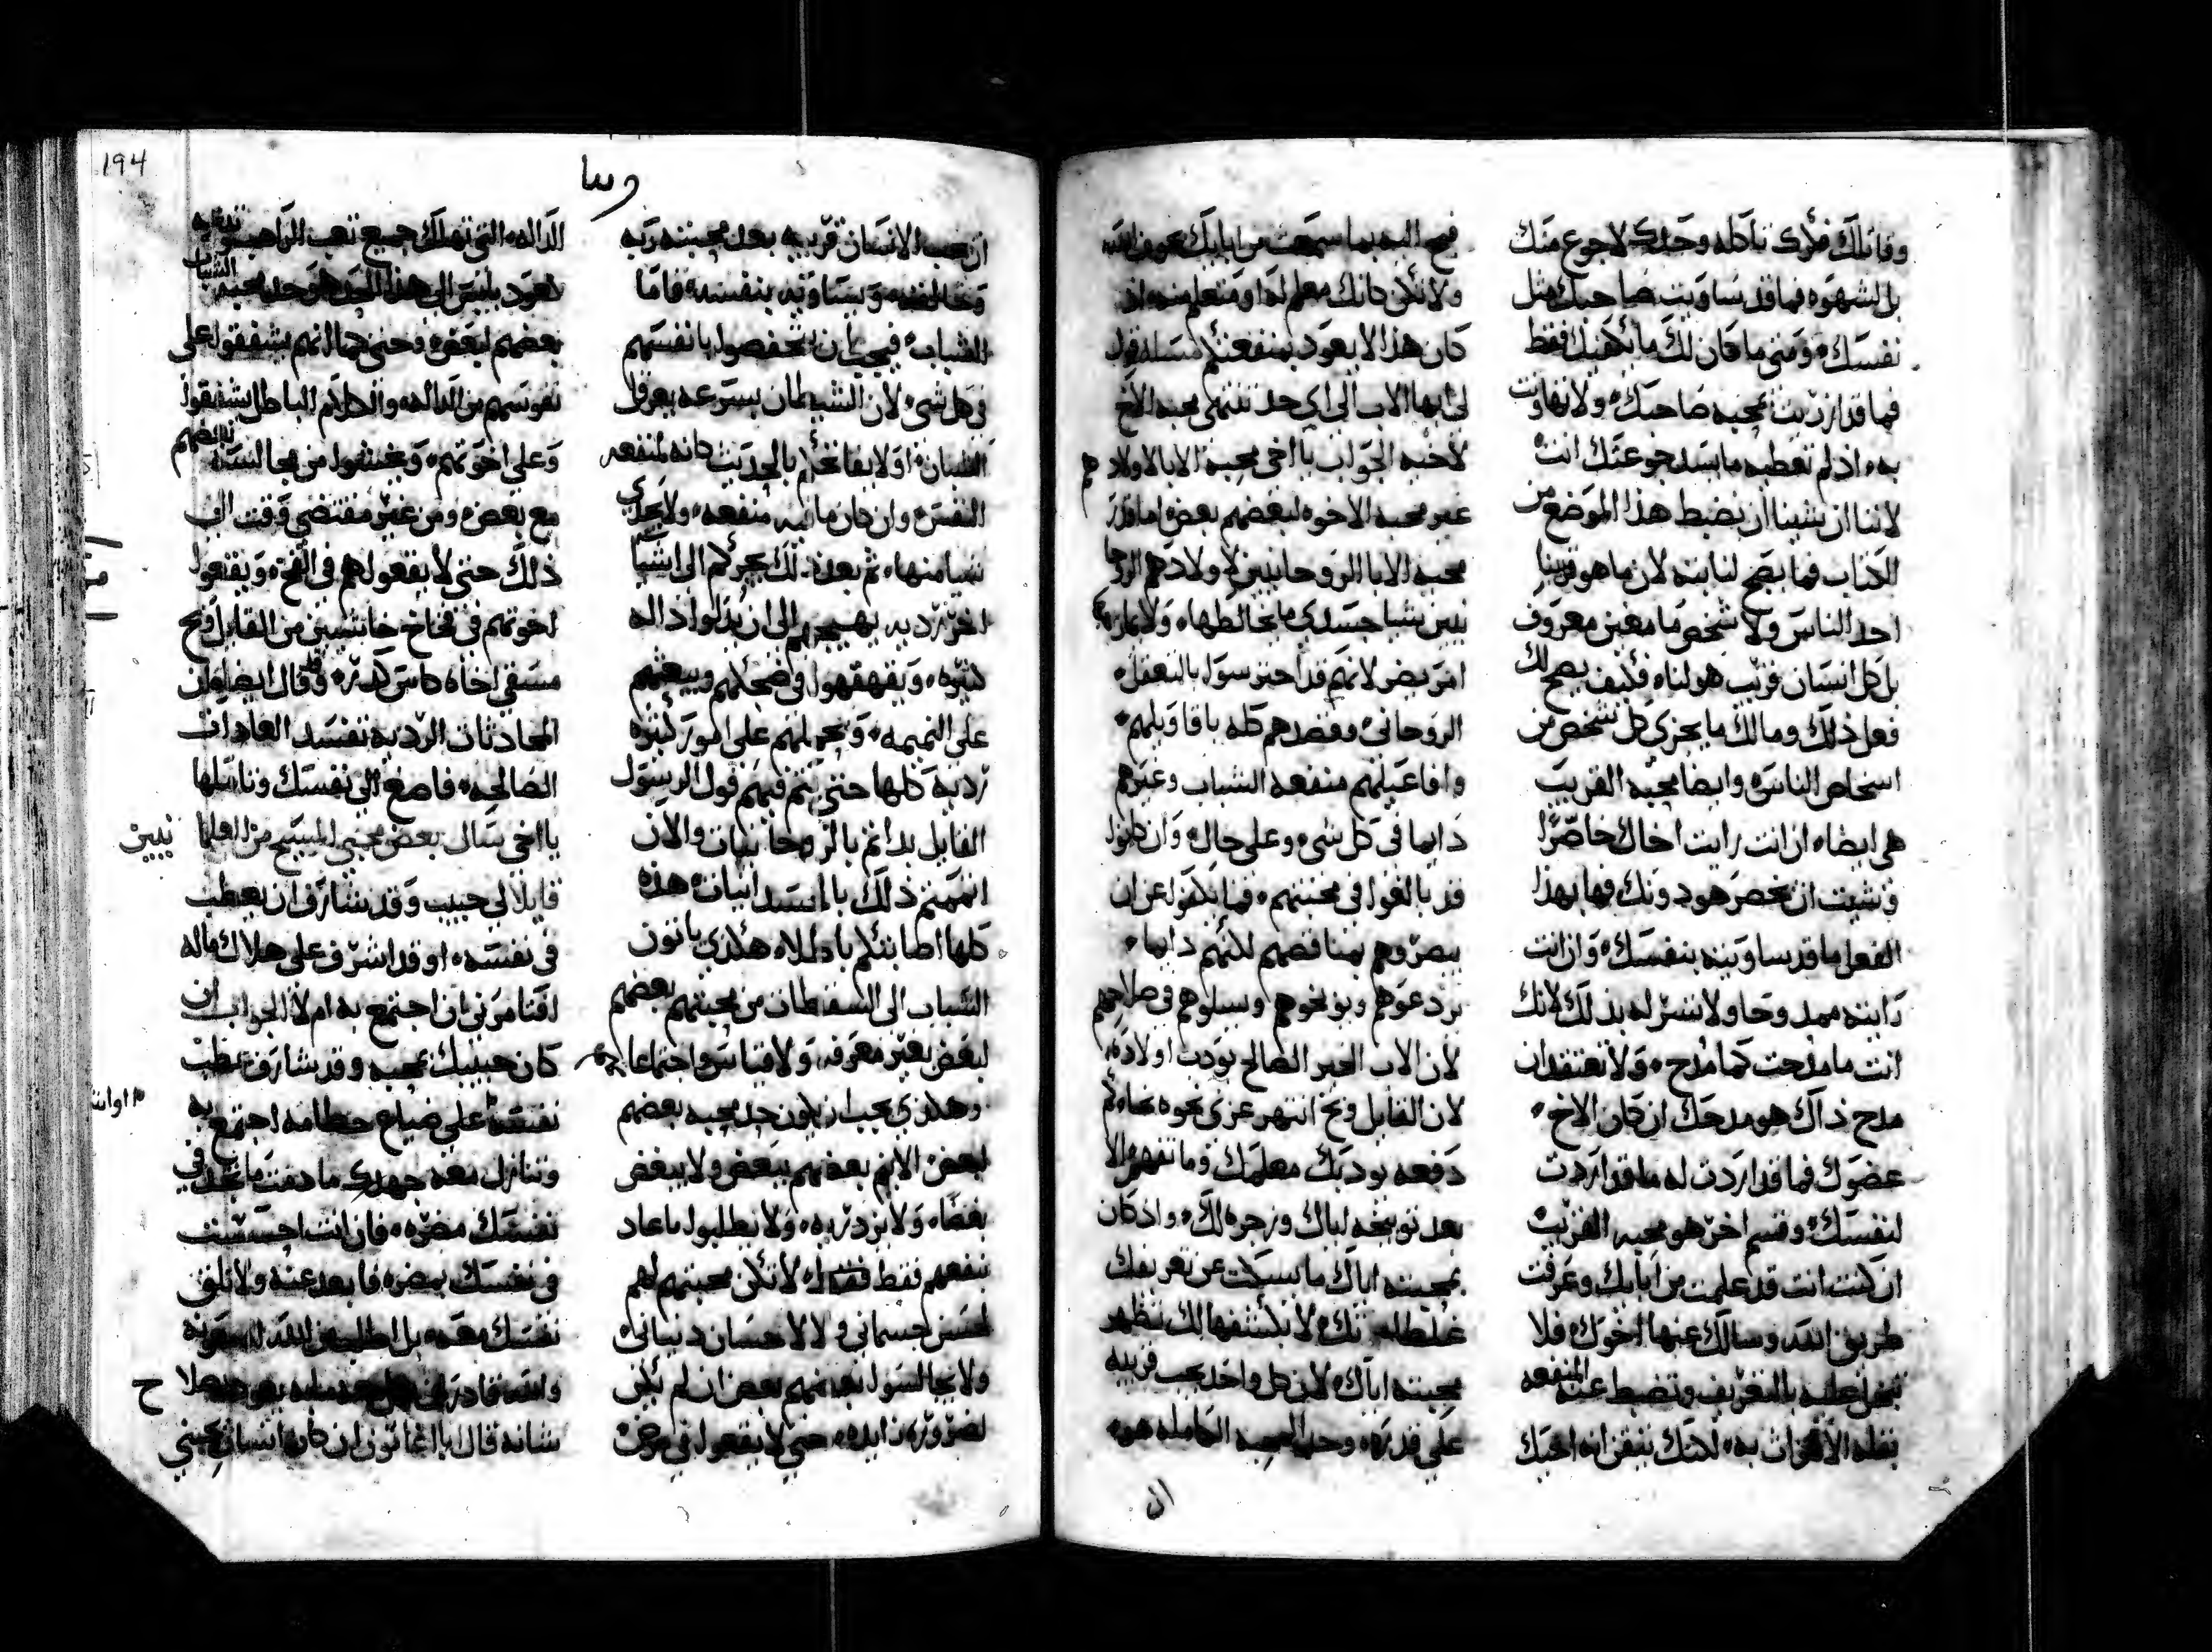 وقاتلك فلاك تاكله وحدك لا جوع منك
بل لشهوه فما قد ساويت صاحبك مثل
نفسك ومتى ما كان لك ما يكفيك فقط
فما قد ازريت بمحبه صاحبك ولا تهاونت
به اذ لم تعطيه ما يسد جوعتك انت
لاننا ان شينا ان نضبط هذا الموضع من
الكتاب فما يصح لنا بته لان ما هو قريبنا
احد الناس ولا شخص ما معين معروف
بل كل انسان قريب هو لنا فكيف يصح لك
فعل ذلك ومالك ما يجزي كل شخص من
اشخاص الناس وايضا محبه القريب
هي ايضا ان انت رايت اخاك خاصرا
وشيت ان تخصر هو دونك فها بهذا
الفعل ما قد ساويته بنفسك وان انت
رايته ممدوحا ولا تسر له بذلك لانك
انت ما مدحت كما مدح ولا تعتقد ان
مدح ذاك هو مدحك ان كان الاخ
عضوك فما قد اردت له ما قد اردت
لنفسك وقسم اخر هو محبه القريب
ان كنت انت قد علمت من ابايك وعرفت
طريق الله وسالك عنها اخوك فلا
تبخل عليه بالتعريف وتضبط عنه المنفعه
بقله الاكتراث به لكنك تيقن انه اخيك
فبح اليه بما سمعت من ابايك بخوف الله
ولا تكن كانك معلم له او متعلم منه اذ
كان هذا لا يعود بمنفعتكم مسله قول
لي ايها الاب الى اي حد تنتهى محبه الاخ
لاخيه الجواب يا اخي محبة الابا الاولادهم
غير محبه الاخوه لبعضهم بعض اما قدر
محبه الابا الروحانيين لاولادهم الروحا
نيين شيا جسدي ما يخالطها ولا يمازجها
امر يضر لانهم قد احترسوا بالتعقل
الروحاني وقصدهم كله باقاويلهم
وافاعيلهم منفعه الشباب وغيرهم
دايما في كل شي وعلى حال وان كانوا
قد بالغوا في محبتهم فما يكفوا عن ان
يبصروهم بمناقصهم لكنهم دايما
يردعوهم ويوبخوهم ويسلوهم في صلاحهم
لان الاب الخير الصالح يودب اولاده
لان القايل وبخ انتهر عزى نحوه نحاه كم
دفعه يودبك معلمك وما تفهم الا
بعد توبيخه اياك وزجره لك واذ كان
بمحبته اياك ما يسكت عن تعريفك
غلطاتك لا يكشفها لك تظهر
محبته اياك لان كل واحد يحب قريبه
على قدره وحد المحبه الكامله هو
ان
وسا
194
ان يحب الانسان قريبه بعد محبته ربه
وخالقه ويساويه بنفسه فاما
الشباب فيجب ان يتحفصوا بانفسهم
في كل شي لان الشيطان بسرعه يعرقل
الشبان اولا يفاتحكم بالحديث كانه لمنفعه
النفس وان كان ما فيه منفعه ولا يجدي
شيا منها ثم بعد ذلك يجركم الى اشيا
اخر رديه يهيجهم الى ان يدلوا داله
كثيره ويقهقهوا في ضحكهم ويبعثهم
على النميمه ويحملهم على امور كثيره
رديه كلها حتى يتم فيهم قول الرسول
القايل بداتم بالروحانيات والان
اتممتم ذلك بالجسدانيات هذه
كلها اصابتكم باطلا هكذي ياتون
الشباب الى السقطات من محبتهم بعضهم
لبعض بغير معرفه ولا قياس واجتماعا
وهكذي يجب ان يكون حد محبه بعضهم
لبعض الا ينم بعضهم ببعض ولا يبغض
بغضا ولا يزدريه ولا يطلبوا ما عاد
بنفعهم فقط لا تكن محبتهم لهم
لحسن جسماني ولا لاحسان دنياني
ولا يجالسوا بعضهم بعض ان لم يكن
لضروره زايده حتى لا يقعوا في مرض
الداله التي تهلك جميع تعب الراهب
بعضهم لبعض وحتى كما انهم يشفقوا على
نفوسهم من الداله والكلام الباطل يشفقوا
وعلى اخوتهم ويخشوا من مجالسه بعضهم
مع بعض ومن غير مقتضي وقت الى
ذلك حتى لا يقعوا هم في الفخ ويقعوا
اخوتهم في فخاخ خانتين من القايل ويح
مسقي اخاه كاس كدره وقال ايضا ان
المحادثات الرديه تفسد العادات
الصالحه فاصغ الى نفسك وتاملها
يا اخي سال بعض محبي المسيح من العلما نيين
قايلا لي حبيب وقد شارف ان يعطب
في نفسه او قد اشرف على هلاك ماله
افتامرني بان اجتمع به ام لا الجواب ان
كان حبيبك تحبه وقد شارف عطب
نفسه على ضياع حطامه اجتمع به
وتنازل معه جهدك ما دمت ما تجد في
نفسك مضره فان انت احسست
في نفسك بمضره فابعد عنه ولا تلق
نفسك معه بل اطلب من الله المعونه
شانه قال يا انبا تون ان كان انسان يحبني